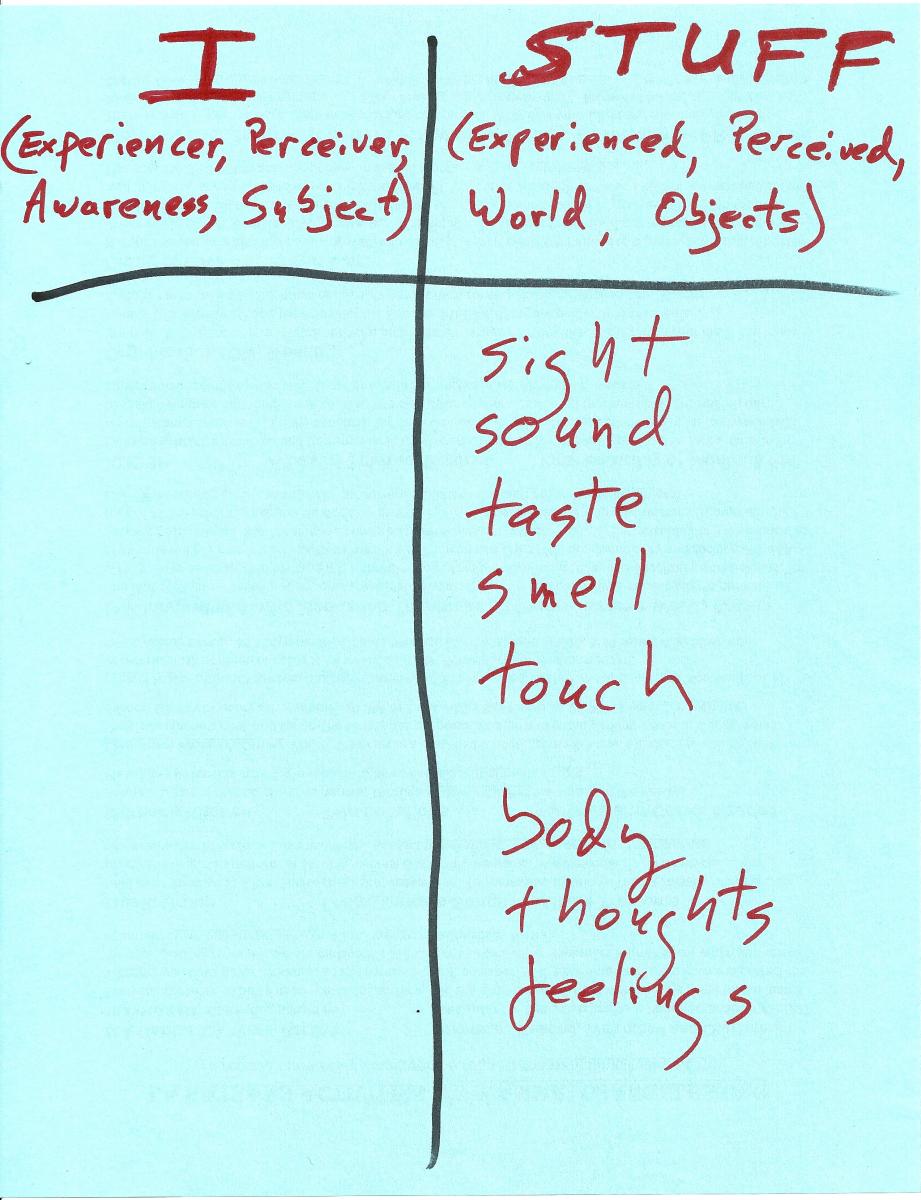 I
(Experiencer, Perceiver,
Awareness, Subject)
STUFF
(Experienced, Perceived,
World, Objects)
sight
sound
taste
smell
touch
body
thoughts
feelings